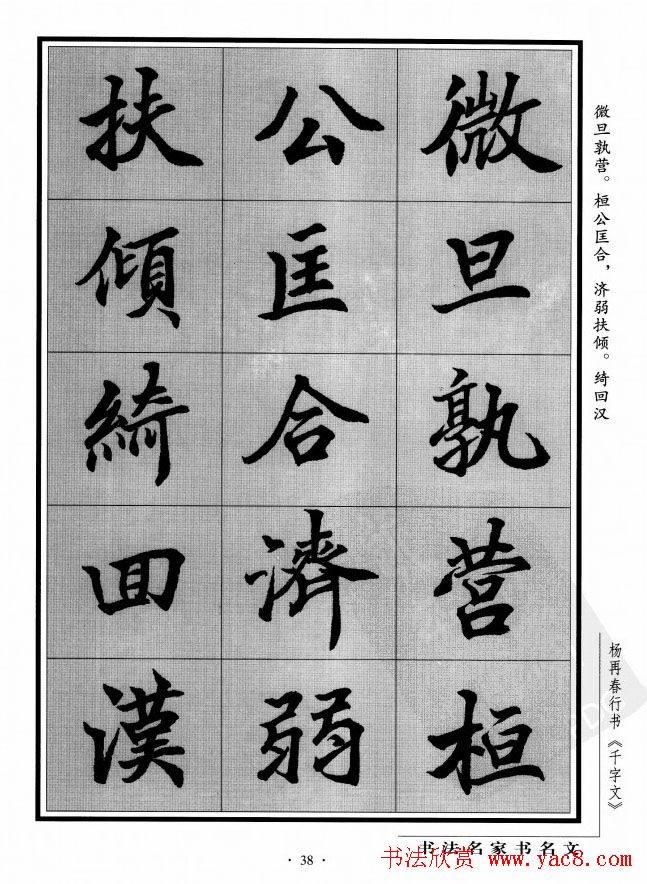 微旦孰营桓
公匡合濟弱
扶傾綺回漢
微旦孰营。桓公匡合，济弱扶倾。绮回汉
杨再春行书《千字文》
书法名家书名文
·38·
书法欣赏 www.yac8.com